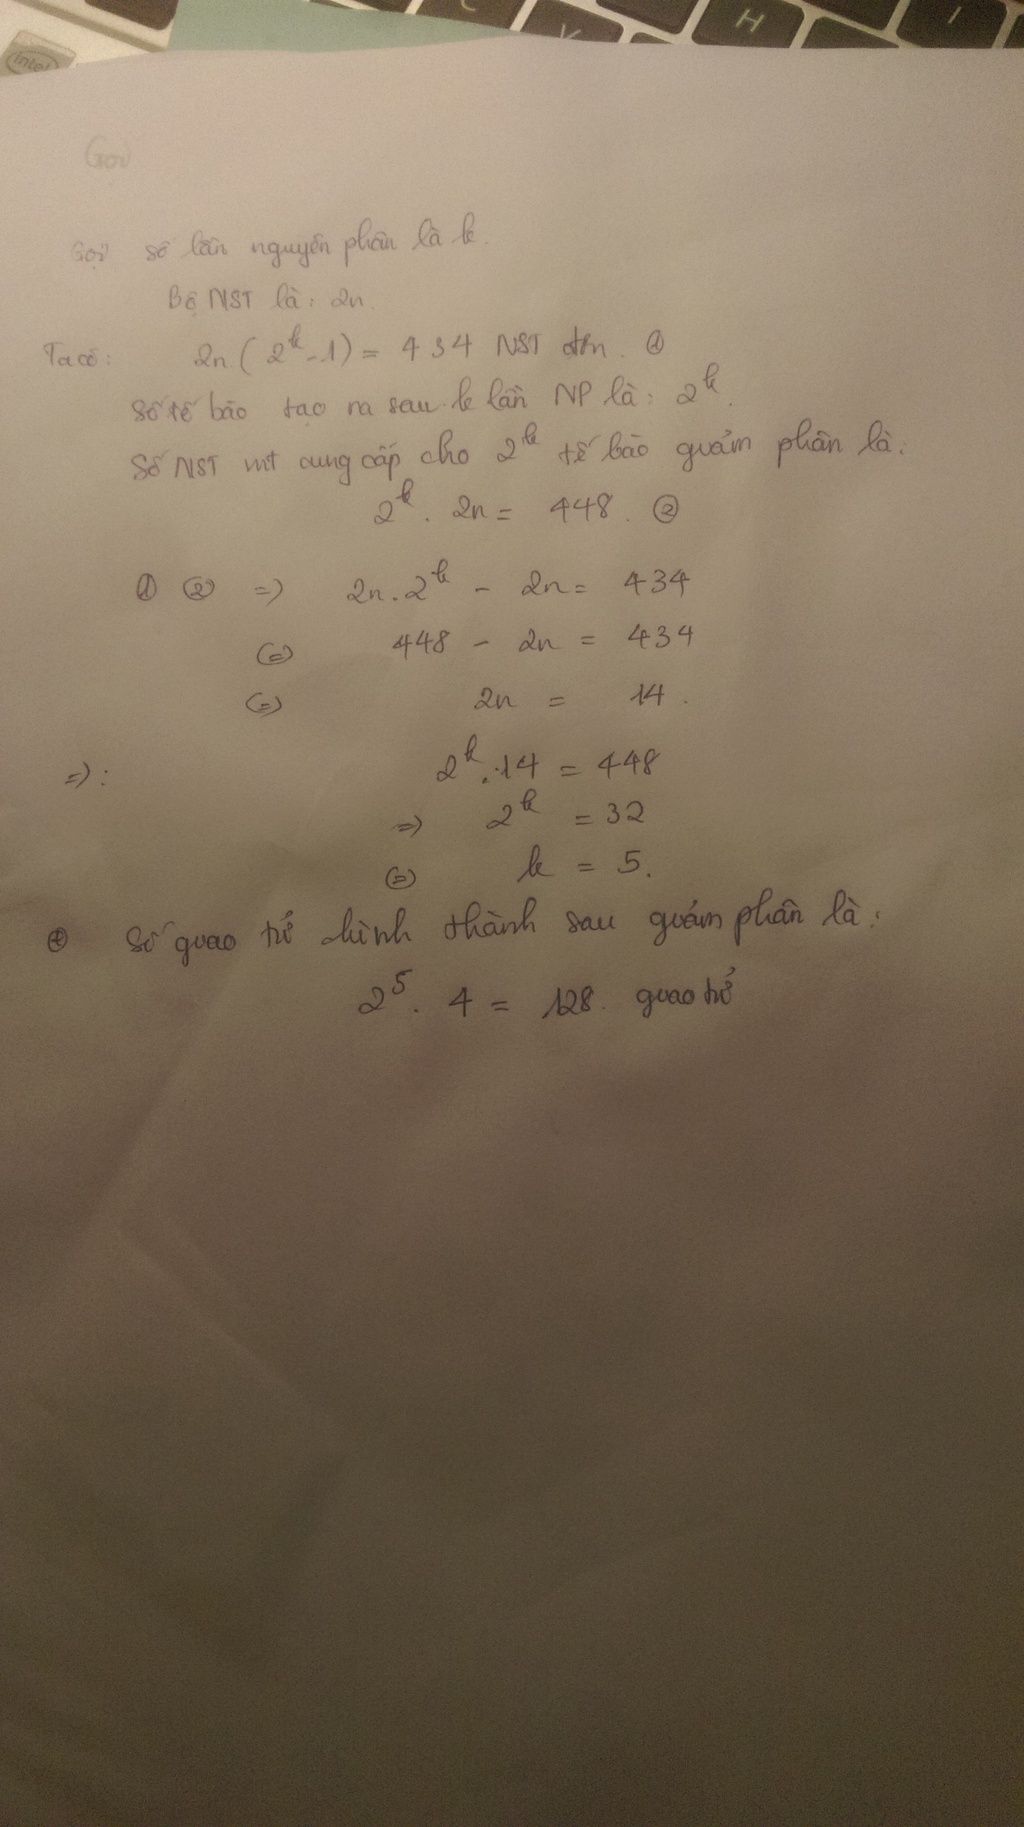 intel
C
V
H
I
Gọi
Gọi số lần nguyên phân là k.
Bộ NST là: 2n.
Ta có: 2n.(2^k - 1) = 434 NST đơn. ①
Số tế bào tạo ra sau k lần NP là: 2^k.
Số NST mt cung cấp cho 2^k tế bào giảm phân là:
2^k. 2n = 448. ②
① ② => 2n.2^k - 2n = 434
(=) 448 - 2n = 434
(=) 2n = 14.
=): 2^k.14 = 448
=> 2^k = 32
(=) k = 5.
⊕ Số giao tử hình thành sau giảm phân là:
2^5. 4 = 128. giao tử